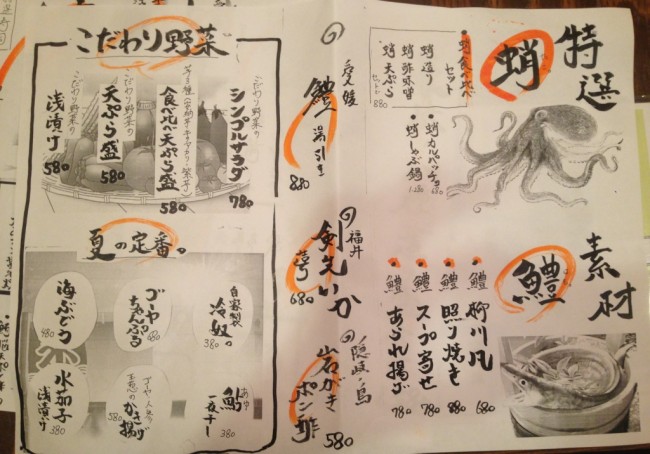 特選
蛸
素材
鱧
蛸食べ比べ
セット
蛸造り
蛸酢味噌
蛸天ぷら
セットで
880
蛸カルパッチョ
680
蛸しゃぶ鍋
鱧 柳川風
680
鱧 照り焼き
880
鱧 スープ寄せ
780
鱧 あられ揚げ
780
愛媛
鱧 湯引き
880
福井
剣先いか
造り
680
隠岐ノ島
岩がき
ポン酢
580
こだわり野菜
こだわり野菜の
シンプルサラダ
780
食べ比べ天ぷら盛
580
こだわり野菜の
天ぷら盛
580
こだわり野菜の
浅漬け
580
夏の定番。
自家製
冷奴
380
ゴーヤ
ちゃんぷる
480
海ぶどう
480
あゆ
鮎
一夜干し
380
かき揚げ
380
水茄子
浅漬け
380